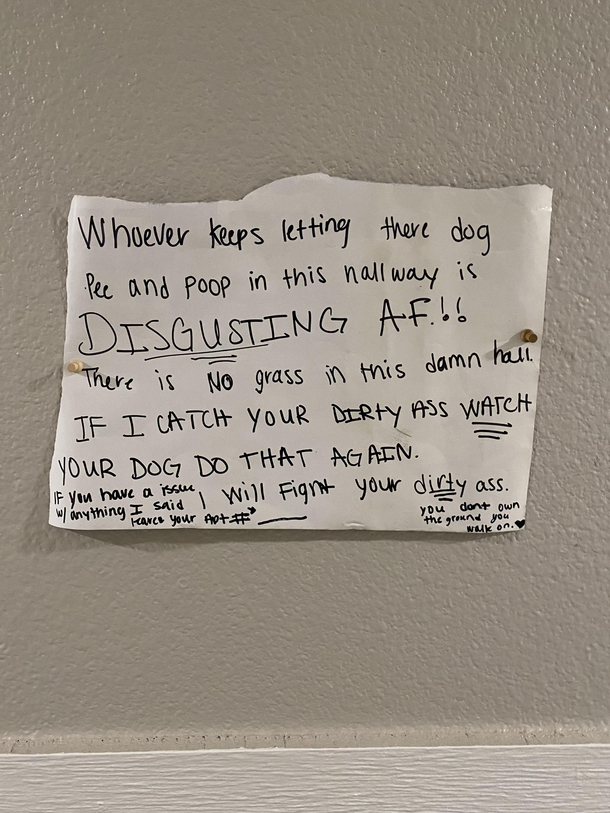 Whoever keeps letting there dog
Pee and poop in this hallway is
DISGUSTING A.F.!!
There is NO grass in this damn hall.
IF I CATCH YOUR DIRTY ASS WATCH
YOUR DOG DO THAT AGAIN.
I will Fight your dirty ass.
IF you have a issue
w/ anything I said
leave your Apt #
you dont own
the ground you
walk on. ♥